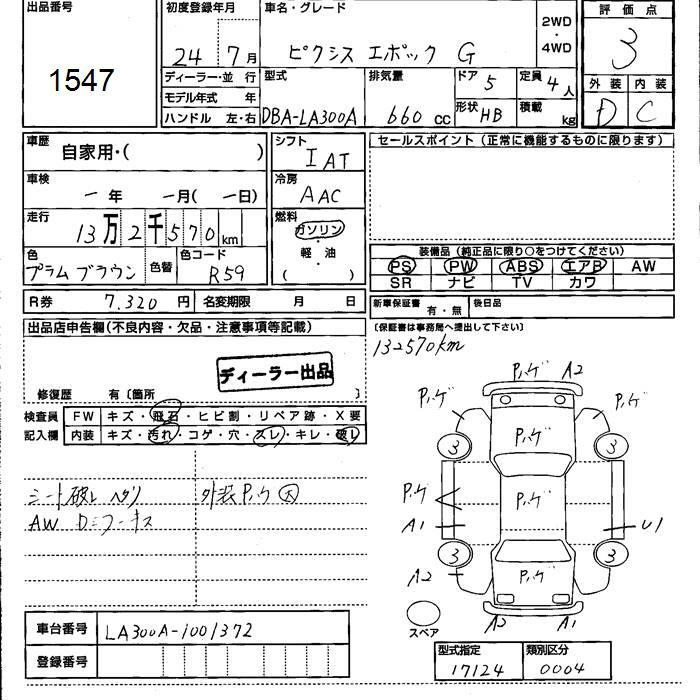 出品番号
1547
初度登録年月
24 7月
車名・グレード
ピクシス エポック G
2WD
・
4WD
評価点
3
外装 内装
D C
ディーラー・並行
モデル年式 年
ハンドル 左・右
型式
DBA-LA300A
排気量
660 cc
ドア 5
形状 HB
定員 4人
積載 kg
車歴
自家用・( )
シフト
IAT
車検
一年 一月(一日)
冷房
AAC
走行
13万2千570km
燃料
ガソリン
・
軽・油
( )
色
プラムブラウン
色替
色コード
R59
セールスポイント (正常に機能するものに限ります)
装備品 (純正品に限り○をつけてください)
PS PW ABS エアB AW
SR ナビ TV カワ
R券 7.320 円 名変期限 月 日
新車保証書 有・無 後日品
(保証書は事務局へ提出して下さい)
132570km
出品店申告欄(不良内容・欠品・注意事項等記載)
ディーラー出品
修復歴 有〔箇所 〕
検査員 FW キズ・飛石・ヒビ割・リペア跡・X要
記入欄 内装 キズ・汚れ・コゲ・穴・スレ・キレ・破レ
シート破レ ヘタリ 外装 P.ハゲ 大
AW
P.ハゲ A2
P.ハゲ P.ハゲ
3 P.ハゲ 3
P.ハゲ P.ハゲ
A1 U1
3 3
A2 P.ハゲ
スペア A2 A1
車台番号 LA300A-1001372
登録番号
型式指定 類別区分
17124 0004